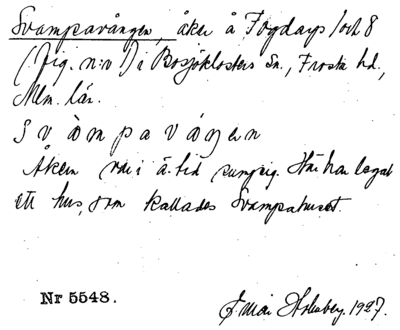 Svampavången, åker å Fogdarp 1 och 8
(Jfg. n:o 1) i Bosjöklosters Sn., Frosta hd.,
Mlm. län.
s v à m p a v á ŋ e n
Åkern var i ä. tid sumpig. Här har legat
ett hus, som kallades Svampahuset.
Nr 5548.
Holmberg. 1927.